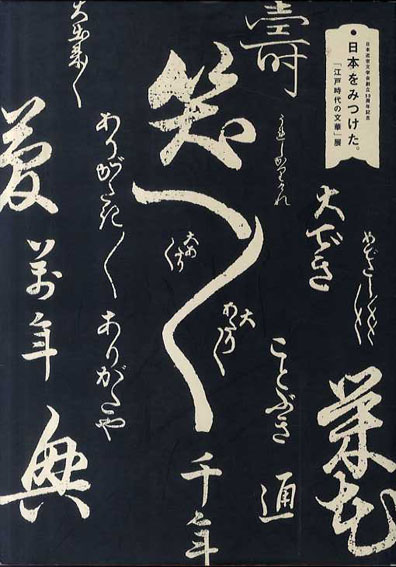 日本近世文学会創立50周年記念
日本をみつけた。
「江戸時代の文華」展
めでたし〱〱
大でき
壽
ことぶき
通
大あたり〱
笑〱
千年
ありがたき〱 ありがたや
大出来〱
萬年